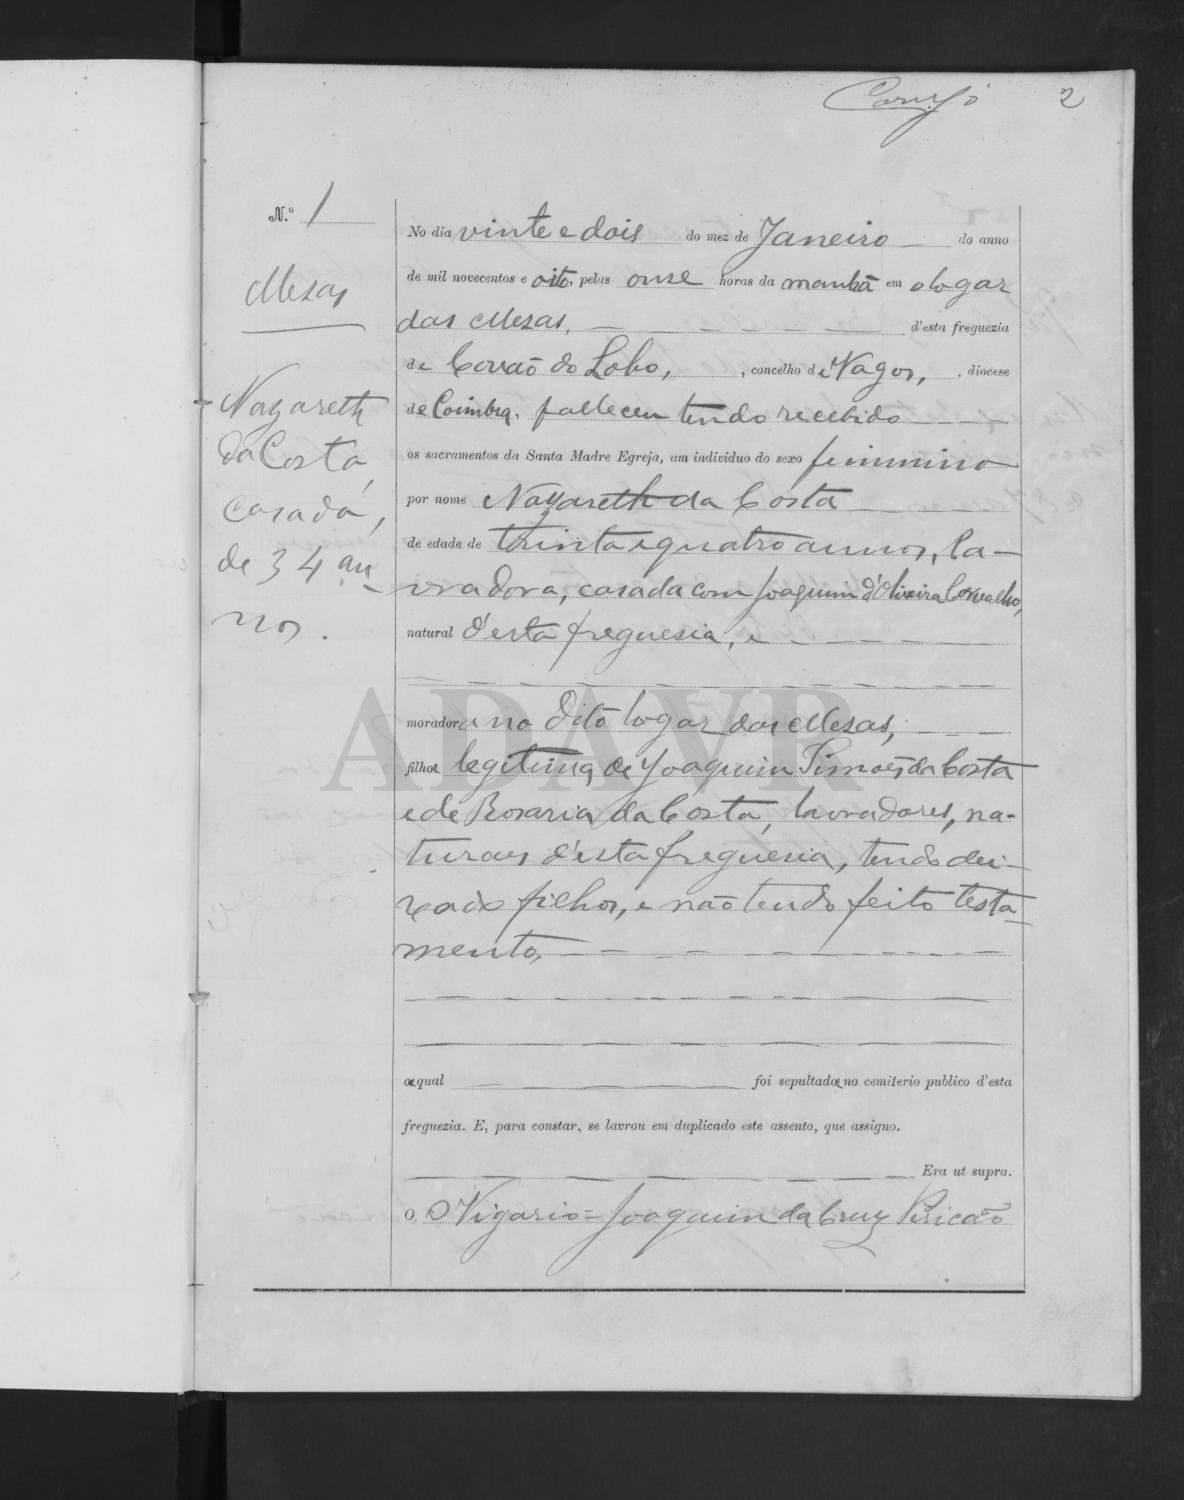 2
N.º 1
Mezas
Nazareth
da Costa,
casada,
de 34 an-
nos.
No dia vinte e dois do mez de Janeiro do anno
de mil novecentos e oito, pelas onse horas da manhã em o logar
das Mezas, d'esta freguezia
de Covão do Lobo, , concelho de Vagos, , diocese
de Coimbra, falleceu tendo recebido
os sacramentos da Santa Madre Egreja, um individuo do sexo feminino
por nome Nazareth da Costa
de edade de trinta e quatro annos, la-
vradora, casada com Joaquim d'Oliveira Carvalho,
natural d'esta freguesia, e
moradora no dito logar das Mezas,
filha legitima de Joaquim Simões da Costa
e de Rosaria da Costa, lavradores, na-
turaes d'esta freguesia, tendo dei-
xado filhos, e não tendo feito testa-
mento,
a qual foi sepultada no cemiterio publico d'esta
freguezia. E, para constar, se lavrou em duplicado este assento, que assigno.
Era ut supra.
O O Vigario = Joaquim da Cruz Pericão
ADAVR